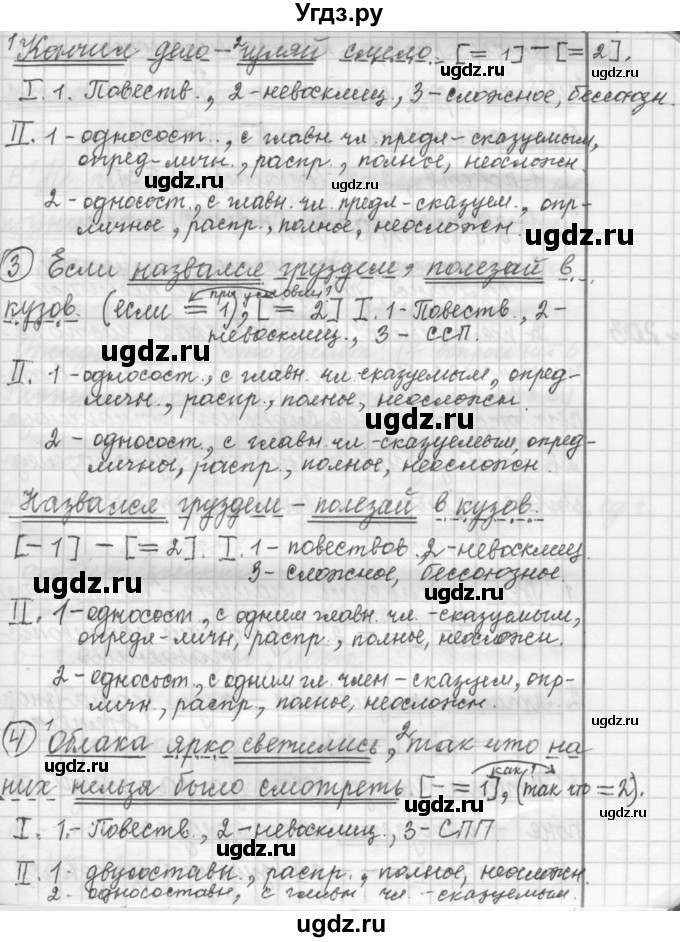 Угдз.ру
¹Кончил дело – ²гуляй смело. [= 1] – [= 2].
I. 1. Повеств., 2 - невосклиц, 3 - сложное, бессоюзн.
II. 1 - односост., с главн. чл. предл - сказуемым,
опред - личн., распр., полное, неосложн
ugdz.ru ugdz.ru
2 - односост, с главн. чл. предл - сказуем., опр-
личное, распр., полные, неосложн.
ugdz.ru
③ Если назвался груздем, полезай в
при условии?
кузов. (если = 1), [= 2] I. 1 - Повеств., 2 -
невосклиц., 3 - ССП.
ugdz.ru ugdz.ru
II. 1 - односост., с главн. чл. сказуемым, опред-
личн., распр., полные, неосложн.
ugdz.ru
2 - односост., с главн. чл - сказуемым, опред-
личны, распр., полное, неосложн.
ugdz.ru
Назвался груздем – полезай в кузов.
[- 1] – [= 2]. I. 1 - повествов. 2 - невосклиц.
3 - сложное, бессоюзное.
ugdz.ru ugdz.ru
II. 1 - односост., с одним главн. чл. - сказуемым,
определ - личн, распр., полное, неосложн.
ugdz.ru
2 - односост., с одним гл. член - сказуем, опр-
личн., распр., полное, неосложн.
ugdz.ru ugdz.ru
④ ¹Облака ярко светились, ²так что на
как?
них нельзя было смотреть. [- = 1], (так что = 2).
ugdz.ru
I. 1. - Повеств., 2 - невосклиц., 3 - СПП
ugdz.ru
II. 1 - двусоставн., распр., полное, неосложн.
2 - односоставн, с главн чл. - сказуемым.
ugdz.ru ugdz.ru